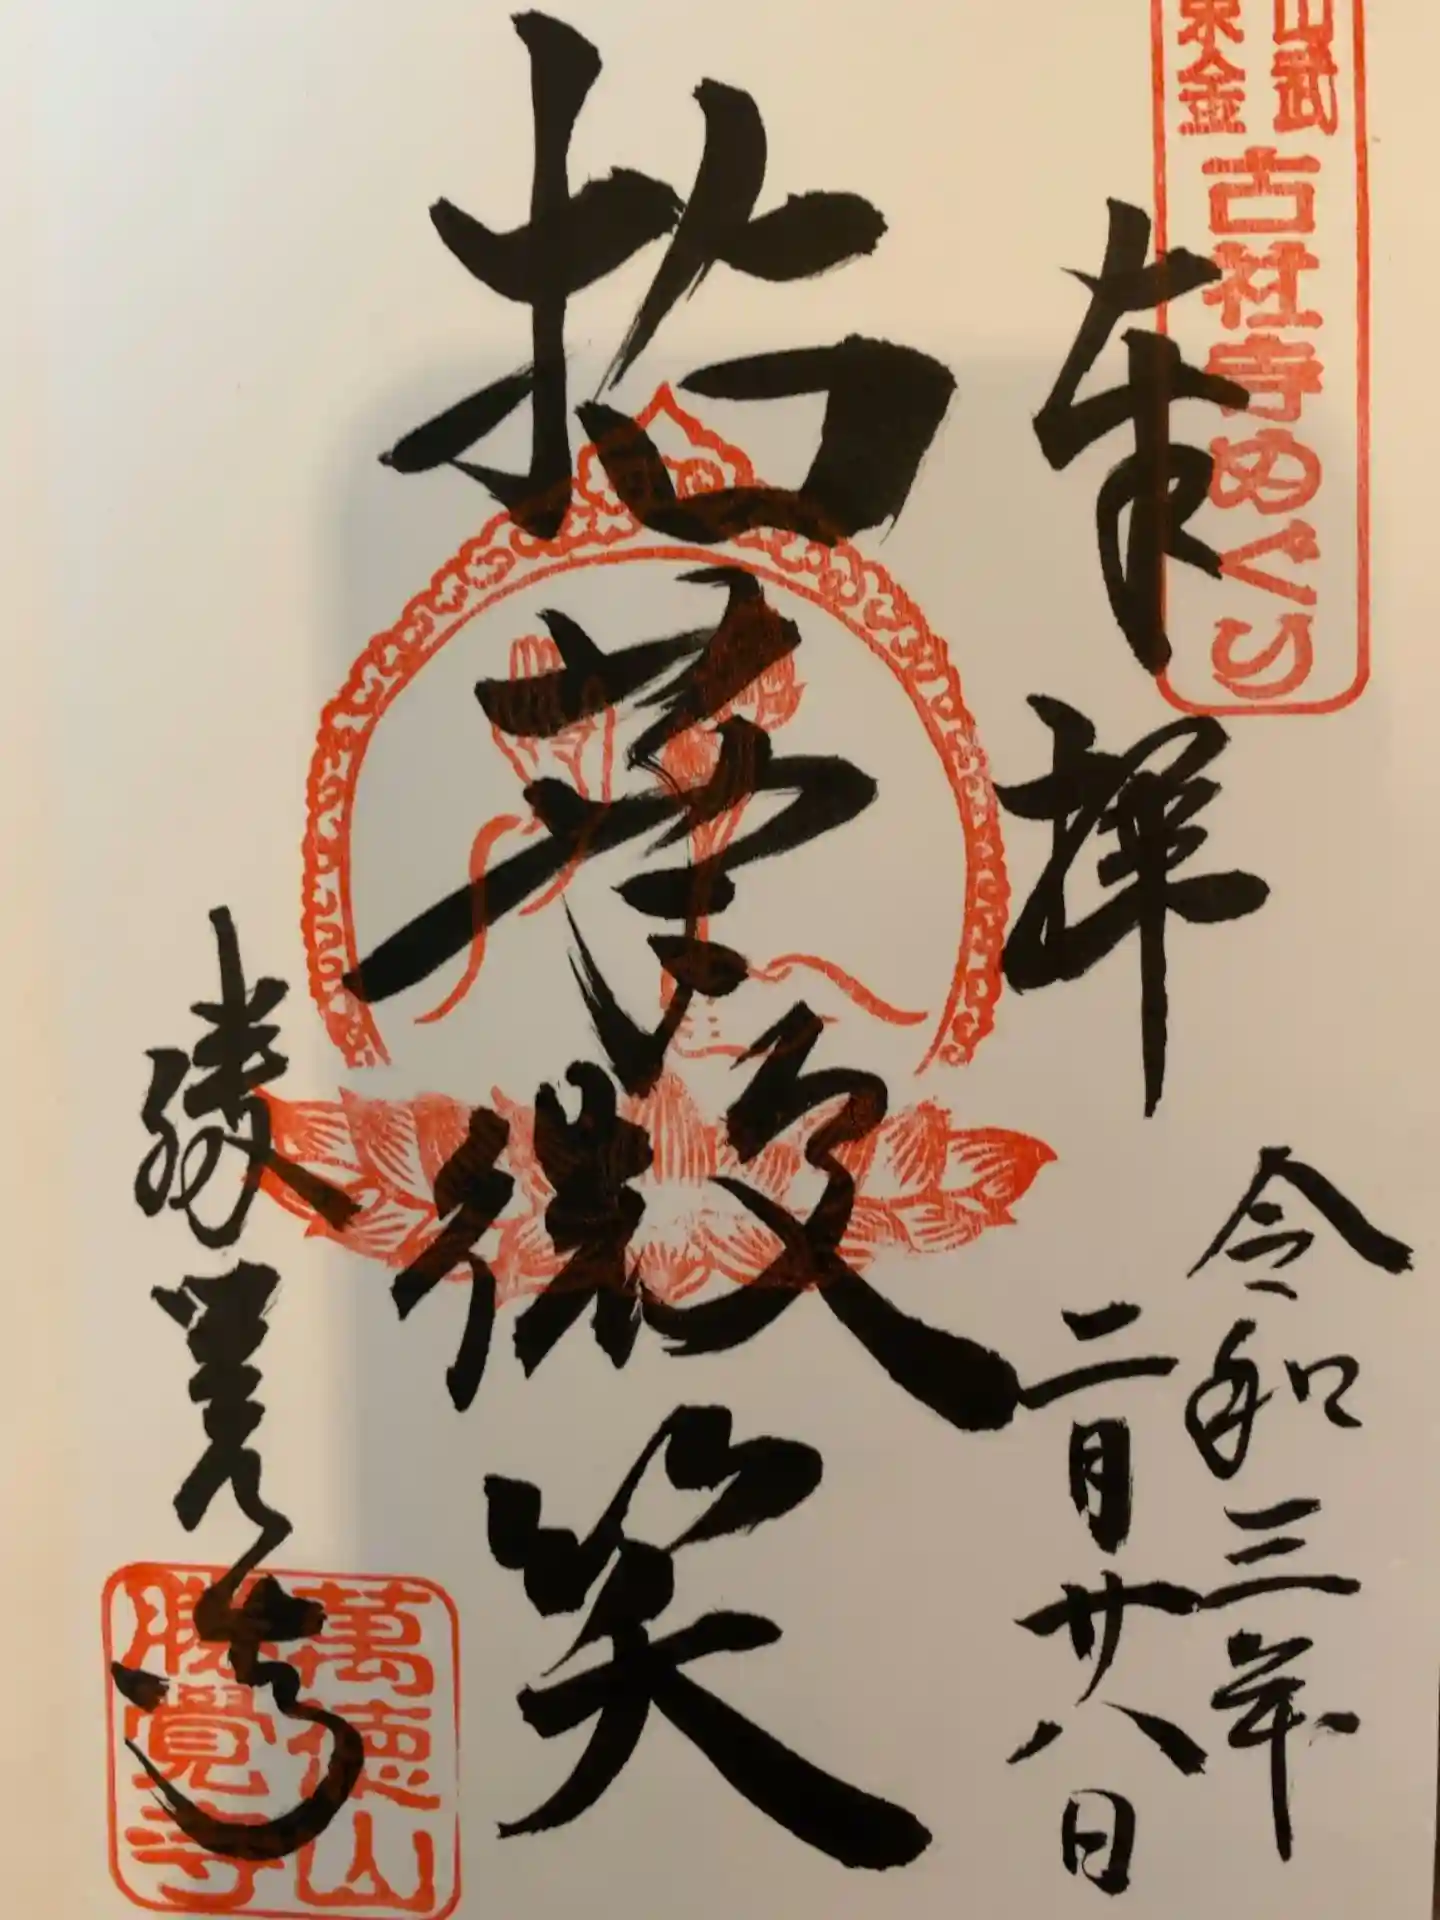 山武
東金
古社寺めぐり
奉拝
令和三年
二月廿八日
拈華微笑
勝覚寺
萬徳山
勝覺寺